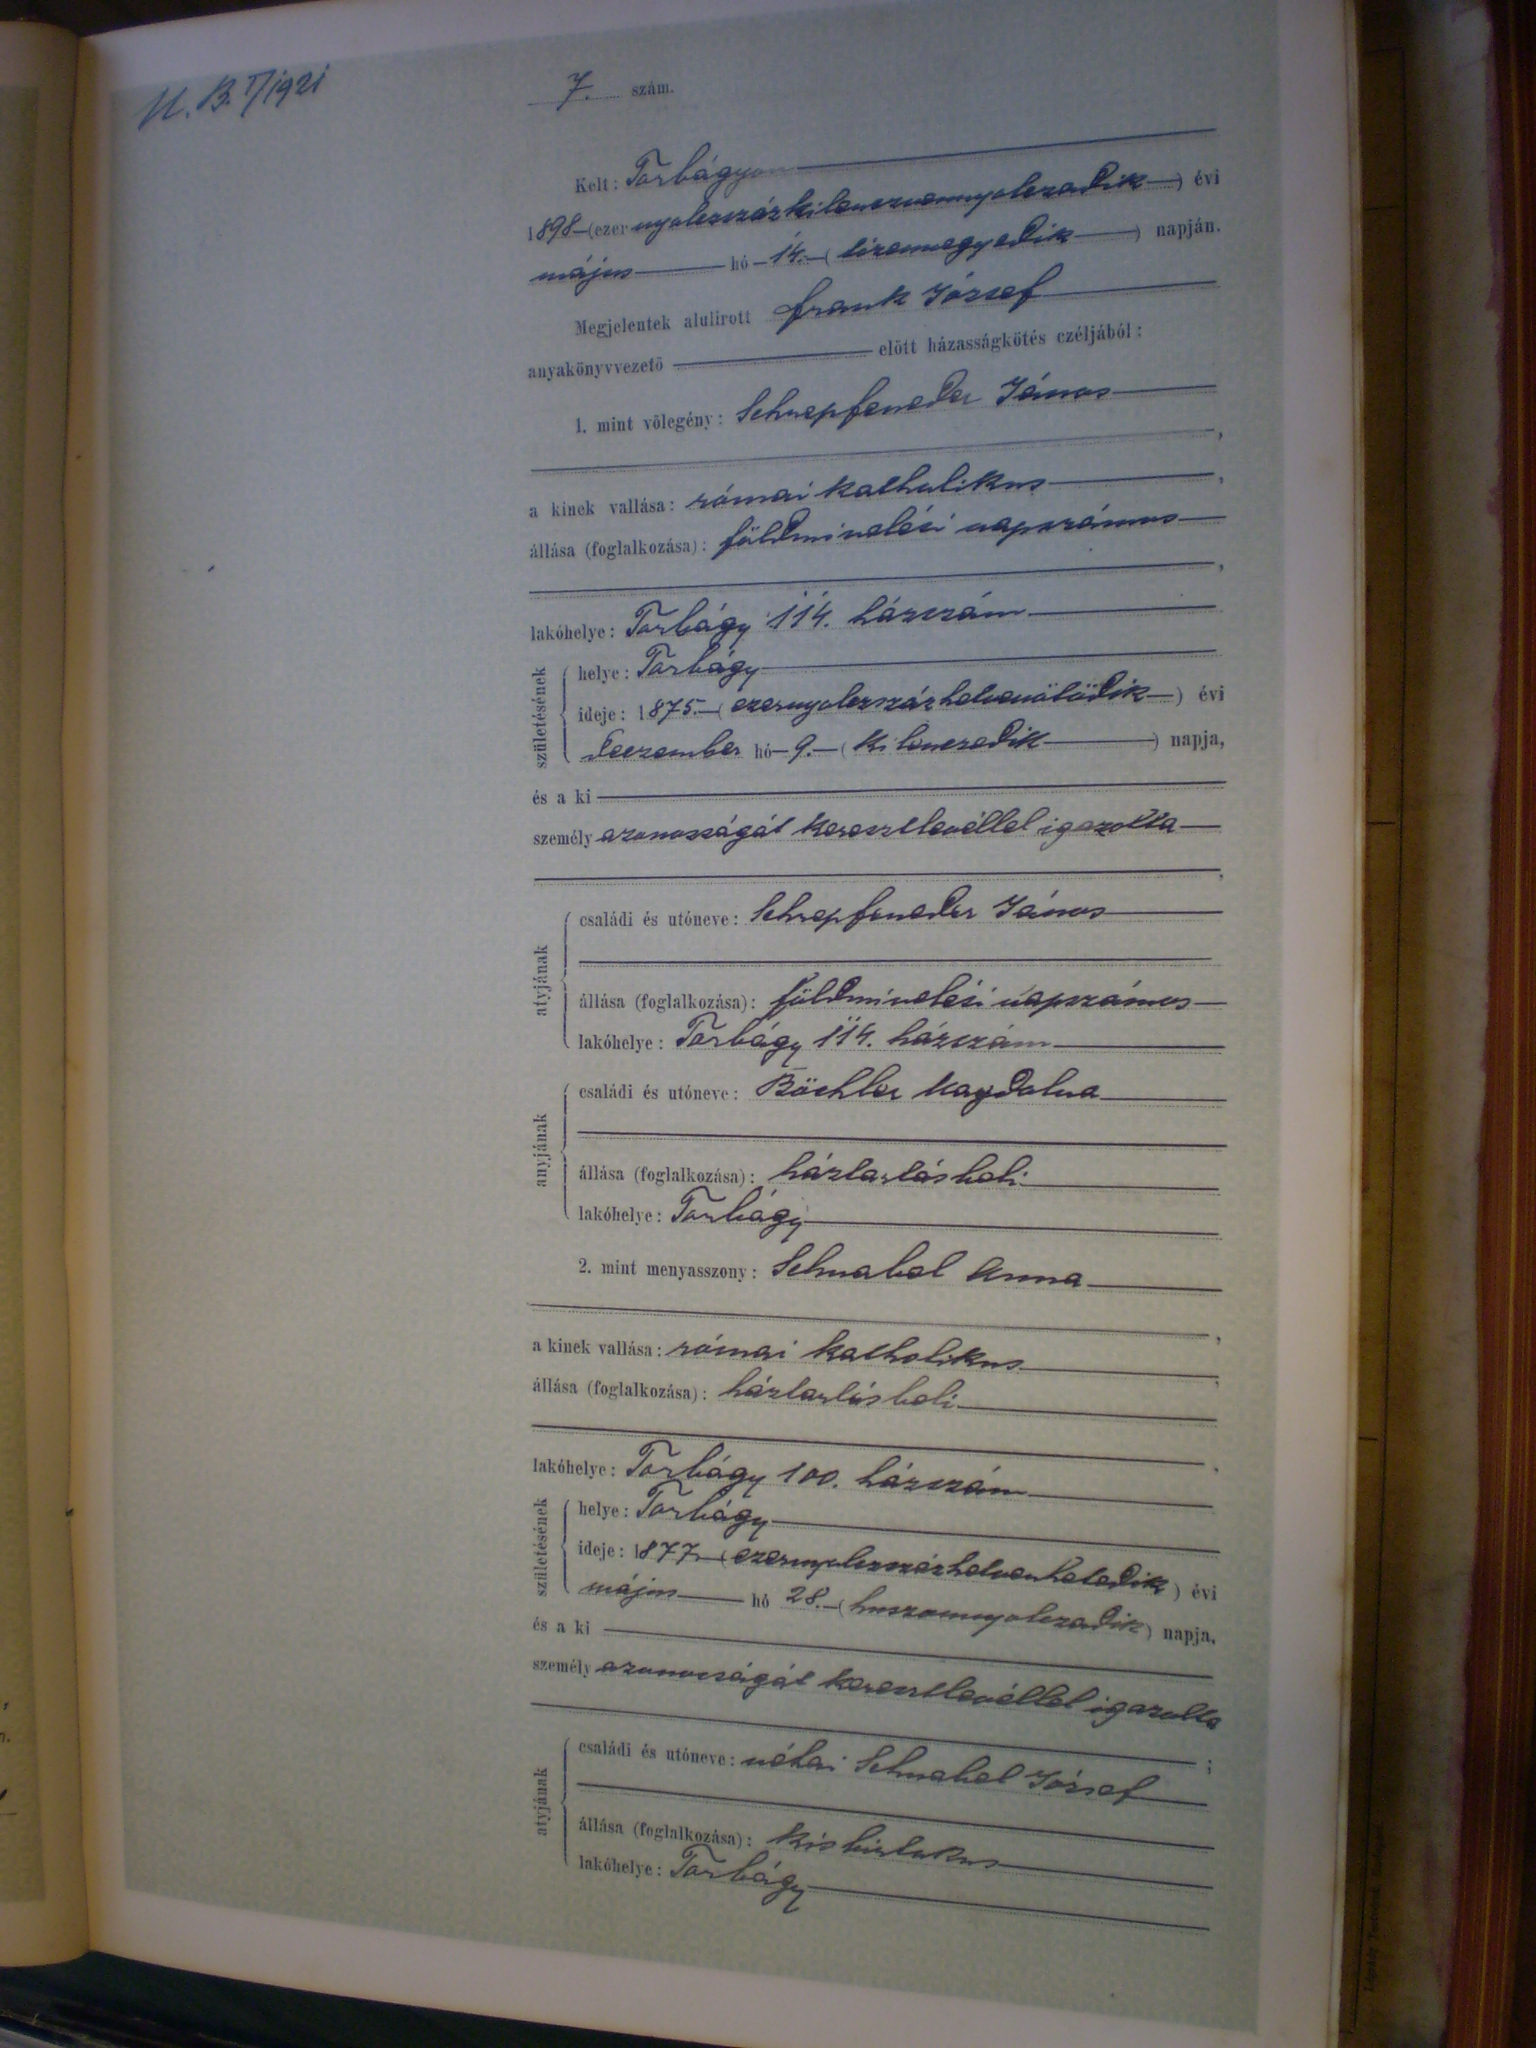 U. B. I/1921
7. szám.
Kelt: Torbágyon
1898 (ezer nyolczszázkilenczvennyolczadik) évi
május hó 14. (tizennegyedik) napján.
Megjelentek alulirott Frank József
anyakönyvvezető előtt házasságkötés czéljából:
1. mint vőlegény: Schrepfeneder János
,
a kinek vallása: római katholikus,
állása (foglalkozása): földmivelési napszámos
,
lakóhelye: Torbágy 114. házszám
születésének
helye: Torbágy
ideje: 1875. (ezernyolczszázhetvenötödik) évi
deczember hó 9. (kilenczedik) napja,
és a ki
személyazonosságát keresztlevéllel igazolta
,
atyjának
családi és utóneve: Schrepfeneder János
állása (foglalkozása): földmivelési napszámos
lakóhelye: Torbágy 114. házszám
anyjának
családi és utóneve: Böchler Magdolna
állása (foglalkozása): háztartásbeli
lakóhelye: Torbágy
2. mint menyasszony: Schnabel Anna
,
a kinek vallása: római katholikus,
állása (foglalkozása): háztartásbeli
,
lakóhelye: Torbágy 100. házszám
születésének
helye: Torbágy
ideje: 1877. (ezernyolczszázhetvenhetedik) évi
május hó 28. (huszonnyolczadik) napja,
és a ki
személyazonosságát keresztlevéllel igazolta
;
atyjának
családi és utóneve: néhai Schnabel József
állása (foglalkozása): kisbirtokos
lakóhelye: Torbágy